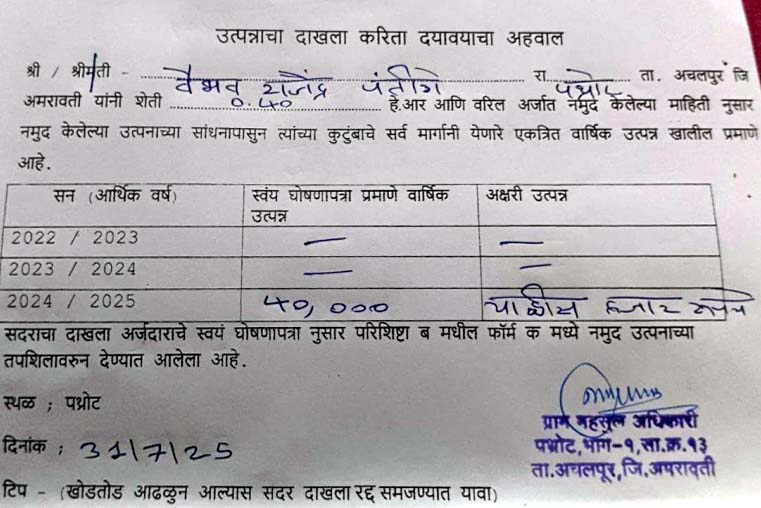 उत्पन्नाचा दाखला करिता दयावयाचा अहवाल
श्री / श्रीमती - वैभव राजेंद्र रा. पथ्रोट ता. अचलपुर जि
अमरावती यांनी शेती ०.४० हे.आर आणि वरिल अर्जात नमुद केलेल्या माहिती नुसार
नमुद केलेल्या उत्पनाच्या सांधनापासुन त्यांच्या कुटुंबाचे सर्व मार्गानी येणारे एकत्रित वार्षिक उत्पन्न खालील प्रमाणे
आहे.
सन (आर्थिक वर्ष) स्वंय घोषणापत्रा प्रमाणे वार्षिक उत्पन्न अक्षरी उत्पन्न
2022 / 2023 — —
2023 / 2024 — —
2024 / 2025 ४०,००० चाळीस हजार रूपये
सदराचा दाखला अर्जदाराचे स्वयं घोषणापत्रा नुसार परिशिष्टा ब मधील फॉर्म क मध्ये नमुद उत्पनाच्या
तपशिलावरुन देण्यात आलेला आहे.
स्थळ ; पथ्रोट
दिनांक ; 31/7/25
ग्राम महसूल अधिकारी
पथ्रोट, भाग-१, सा.क्र.१३
ता.अचलपूर, जि.अमरावती
टिप - (खोडतोड आढळुन आल्यास सदर दाखला रद्द समजण्यात यावा)